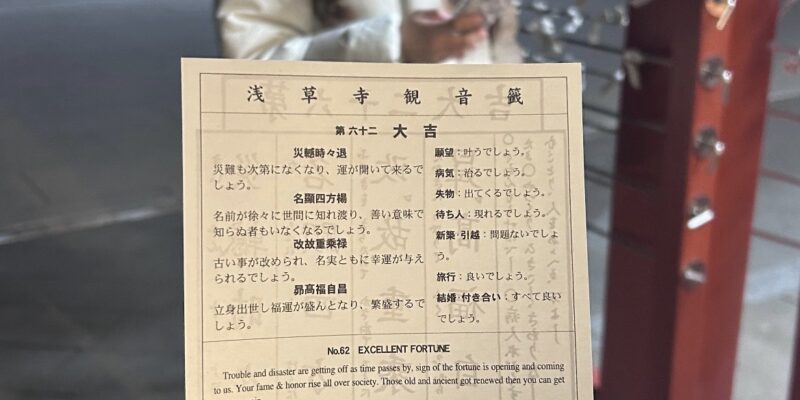 浅草寺観音籤
第六十二 大吉
災轗時々退
災難も次第になくなり、運が開いて来るで
しょう。
名顯四方楊
名前が徐々に世間に知れ渡り、善い意味で
知らぬ者もいなくなるでしょう。
改故重乗禄
古い事が改められ、名実ともに幸運が与え
られるでしょう。
昴高福自昌
立身出世し福運が盛んとなり、繁盛するで
しょう。
願望：叶うでしょう。
病気：治るでしょう。
失物：出てくるでしょう。
待ち人：現れるでしょう。
新築・引越：問題ないでしょ
う。
旅行：良いでしょう。
結婚・付き合い：すべて良い
でしょう。
No.62 EXCELLENT FORTUNE
Trouble and disaster are getting off as time passes by, sign of the fortune is opening and coming
to us. Your fame & honor rise all over society. Those old and ancient got renewed then you can get